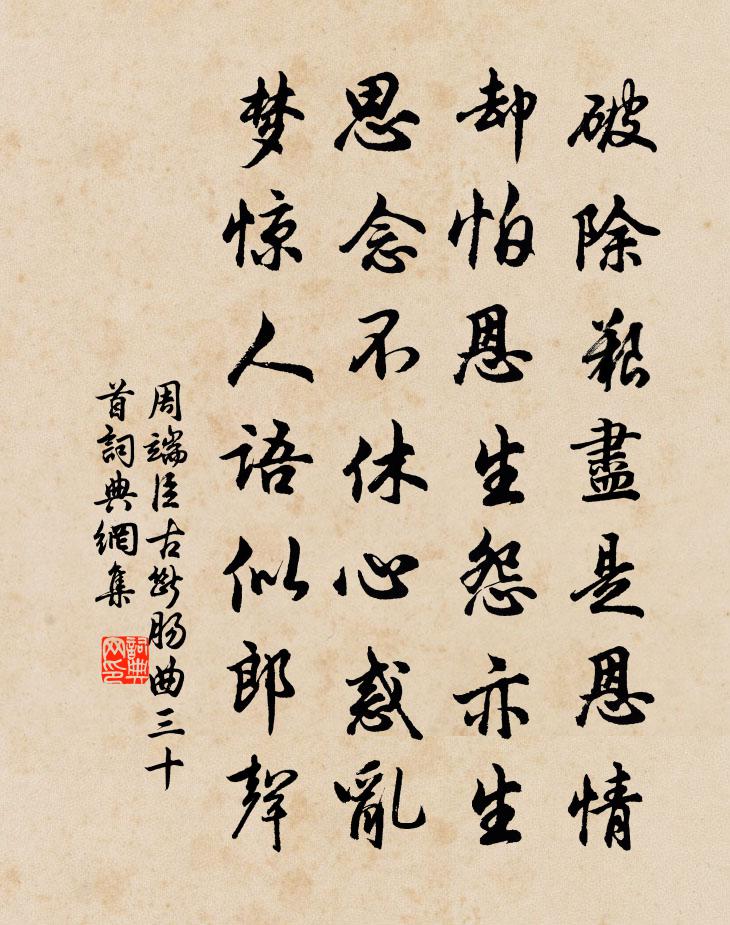 破除艱盡是恩情
却怕恩生怨亦生
思念不休心惑亂
梦惊人語似郎聲
周端臣古断肠曲三十
首詞典網集
詞典网印